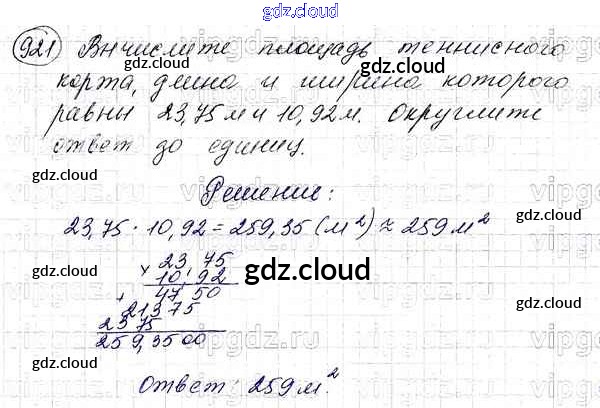 gdz.cloud
921 Вычислите площадь теннисного
корта, длина и ширина которого
равны 23,75 м и 10,92 м. Округлите
ответ до единиц.
Решение:
23,75 · 10,92 = 259,35 (м²) ≈ 259 м²
23,75
× 10,92
47 50
+ 21375
2375
259,3500
Ответ: 259 м².
gdz.cloud
gdz.cloud
gdz.cloud
gdz.cloud
gdz.cloud
gdz.cloud
gdz.cloud
gdz.cloud
gdz.cloud
gdz.cloud